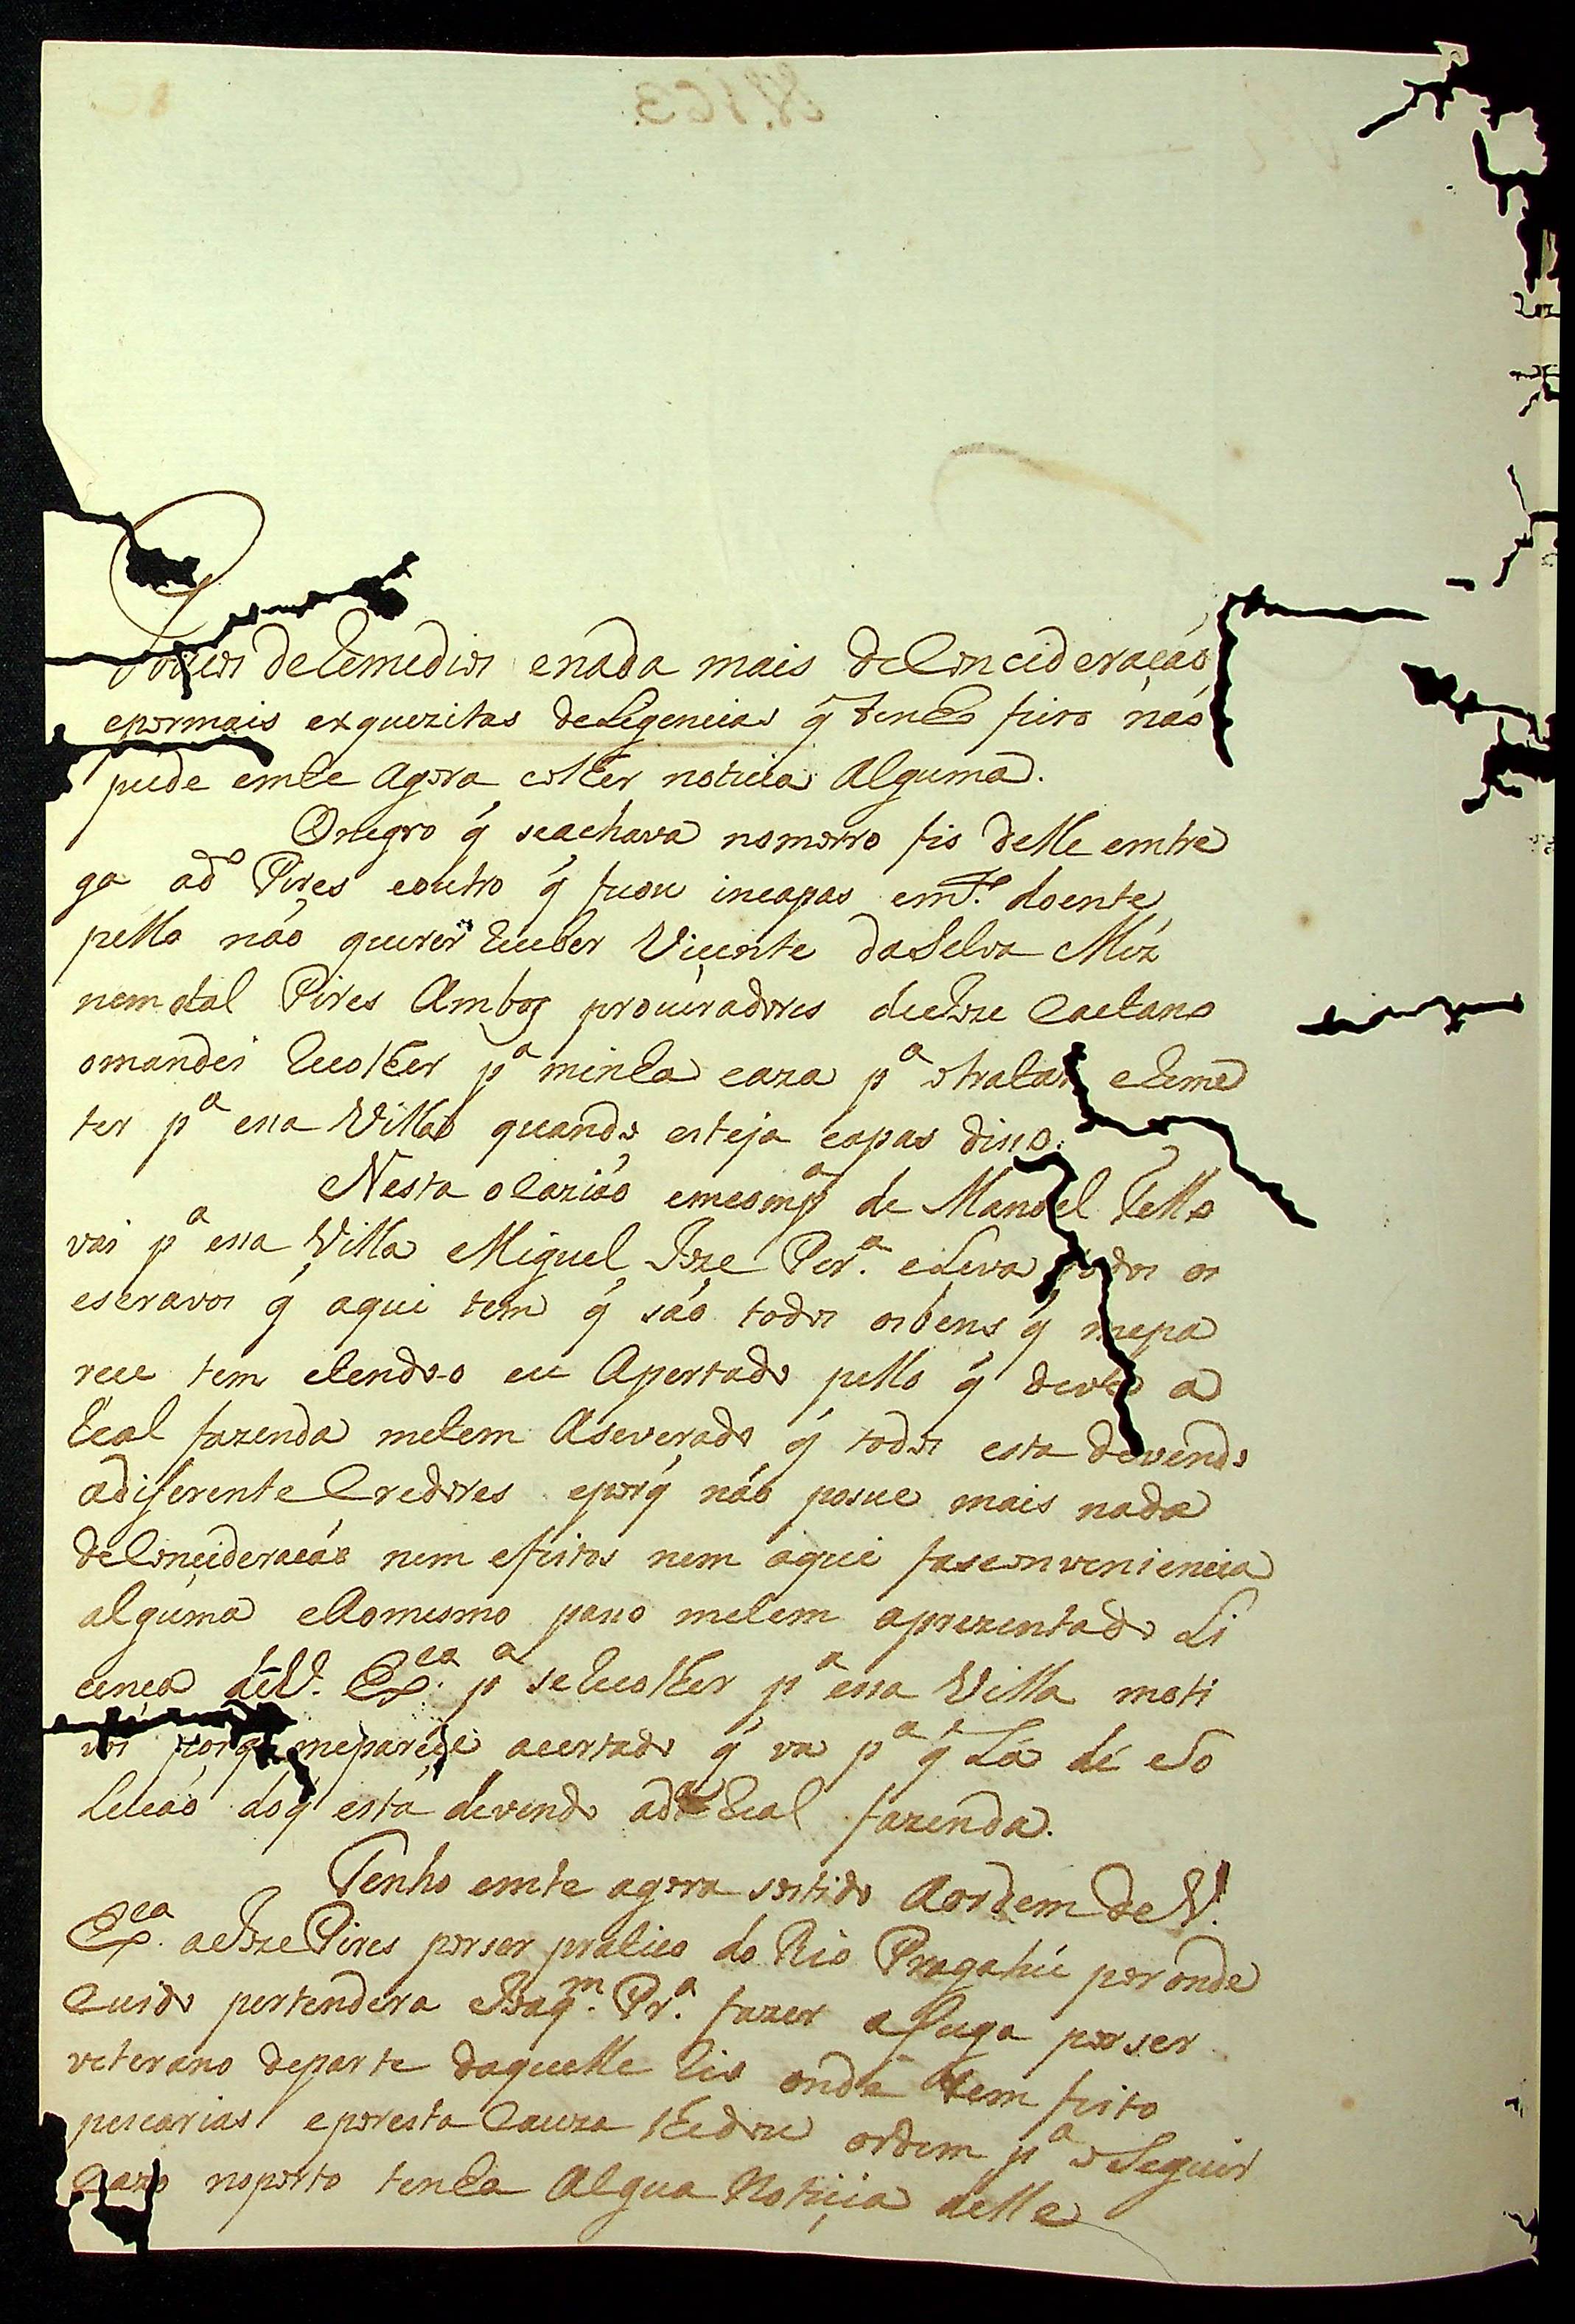 de Remedios enada mais deComcideraçaõ
epormais exquezitas deLigencias q̃ tenho feito naõ
pude emthe Agora colher noticia Alguma.
Onegro q̃ seachava nomorro fis delle emtre
ga ao d.º Pires eoutro q̃ ficou incapas em.to doente
pello naõ querer Receber Vicente daSilva Miz̃
nem otal Pires Ambos procuradores deJoze Caetano
omandei Recolher p.ª minha caza p.ª otratar eReme
ter p.ª essa Villa quando esteja capas disso.
Nesta ocaziaõ emcomp.ª de Manoel Tello
vai p.ª essa Villa Miguel Joze Per.ª eLeva todos os
escravos q̃ aqui tem q̃ saõ todos osbens q̃ mepa
rece tem etendo-o eu Apertado pello q̃ deve a
Real fazenda metem Aseverado q̃ todos esta devendo
adiferente Credores eporq̃ naõ posue mais nada
deComcideraçaõ nem efeitos nem aqui fasconveniencia
alguma eRomesmo passo metem aprezentado Li
cença deV. Ex.ca p.ª seRecolher p.ª essa Villa moti
vos porq̃ mepareçe acertado q̃ va p.ª q̃ Lá dé eSo
luçaõ doq̃ está devendo ad.ª Real fazenda.
Tenho emte agora sostido Aordem deV.
Ex.ca aeJoze Pires porser pratico do Rio Pragahú poronde
Cuido pertendera Joaq.m Pr.ª fazer afuga porser
veterano departe daquelle Rio onde tem feito
pescarias eporesta Cauza lhedou ordem p.ª oSeguir
Cazo noporto tenha Algua Noticia delle